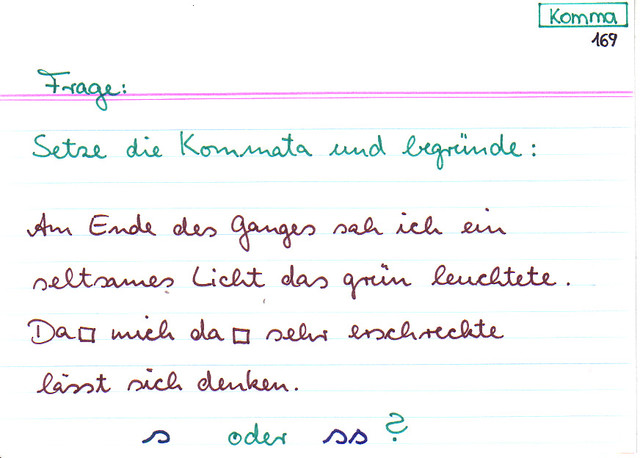 Komma
169
Frage:
Setze die Kommata und begründe:
Am Ende des Ganges sah ich ein
seltsames Licht das grün leuchtete.
Da□ mich da□ sehr erschreckte
lässt sich denken.
s oder ss?